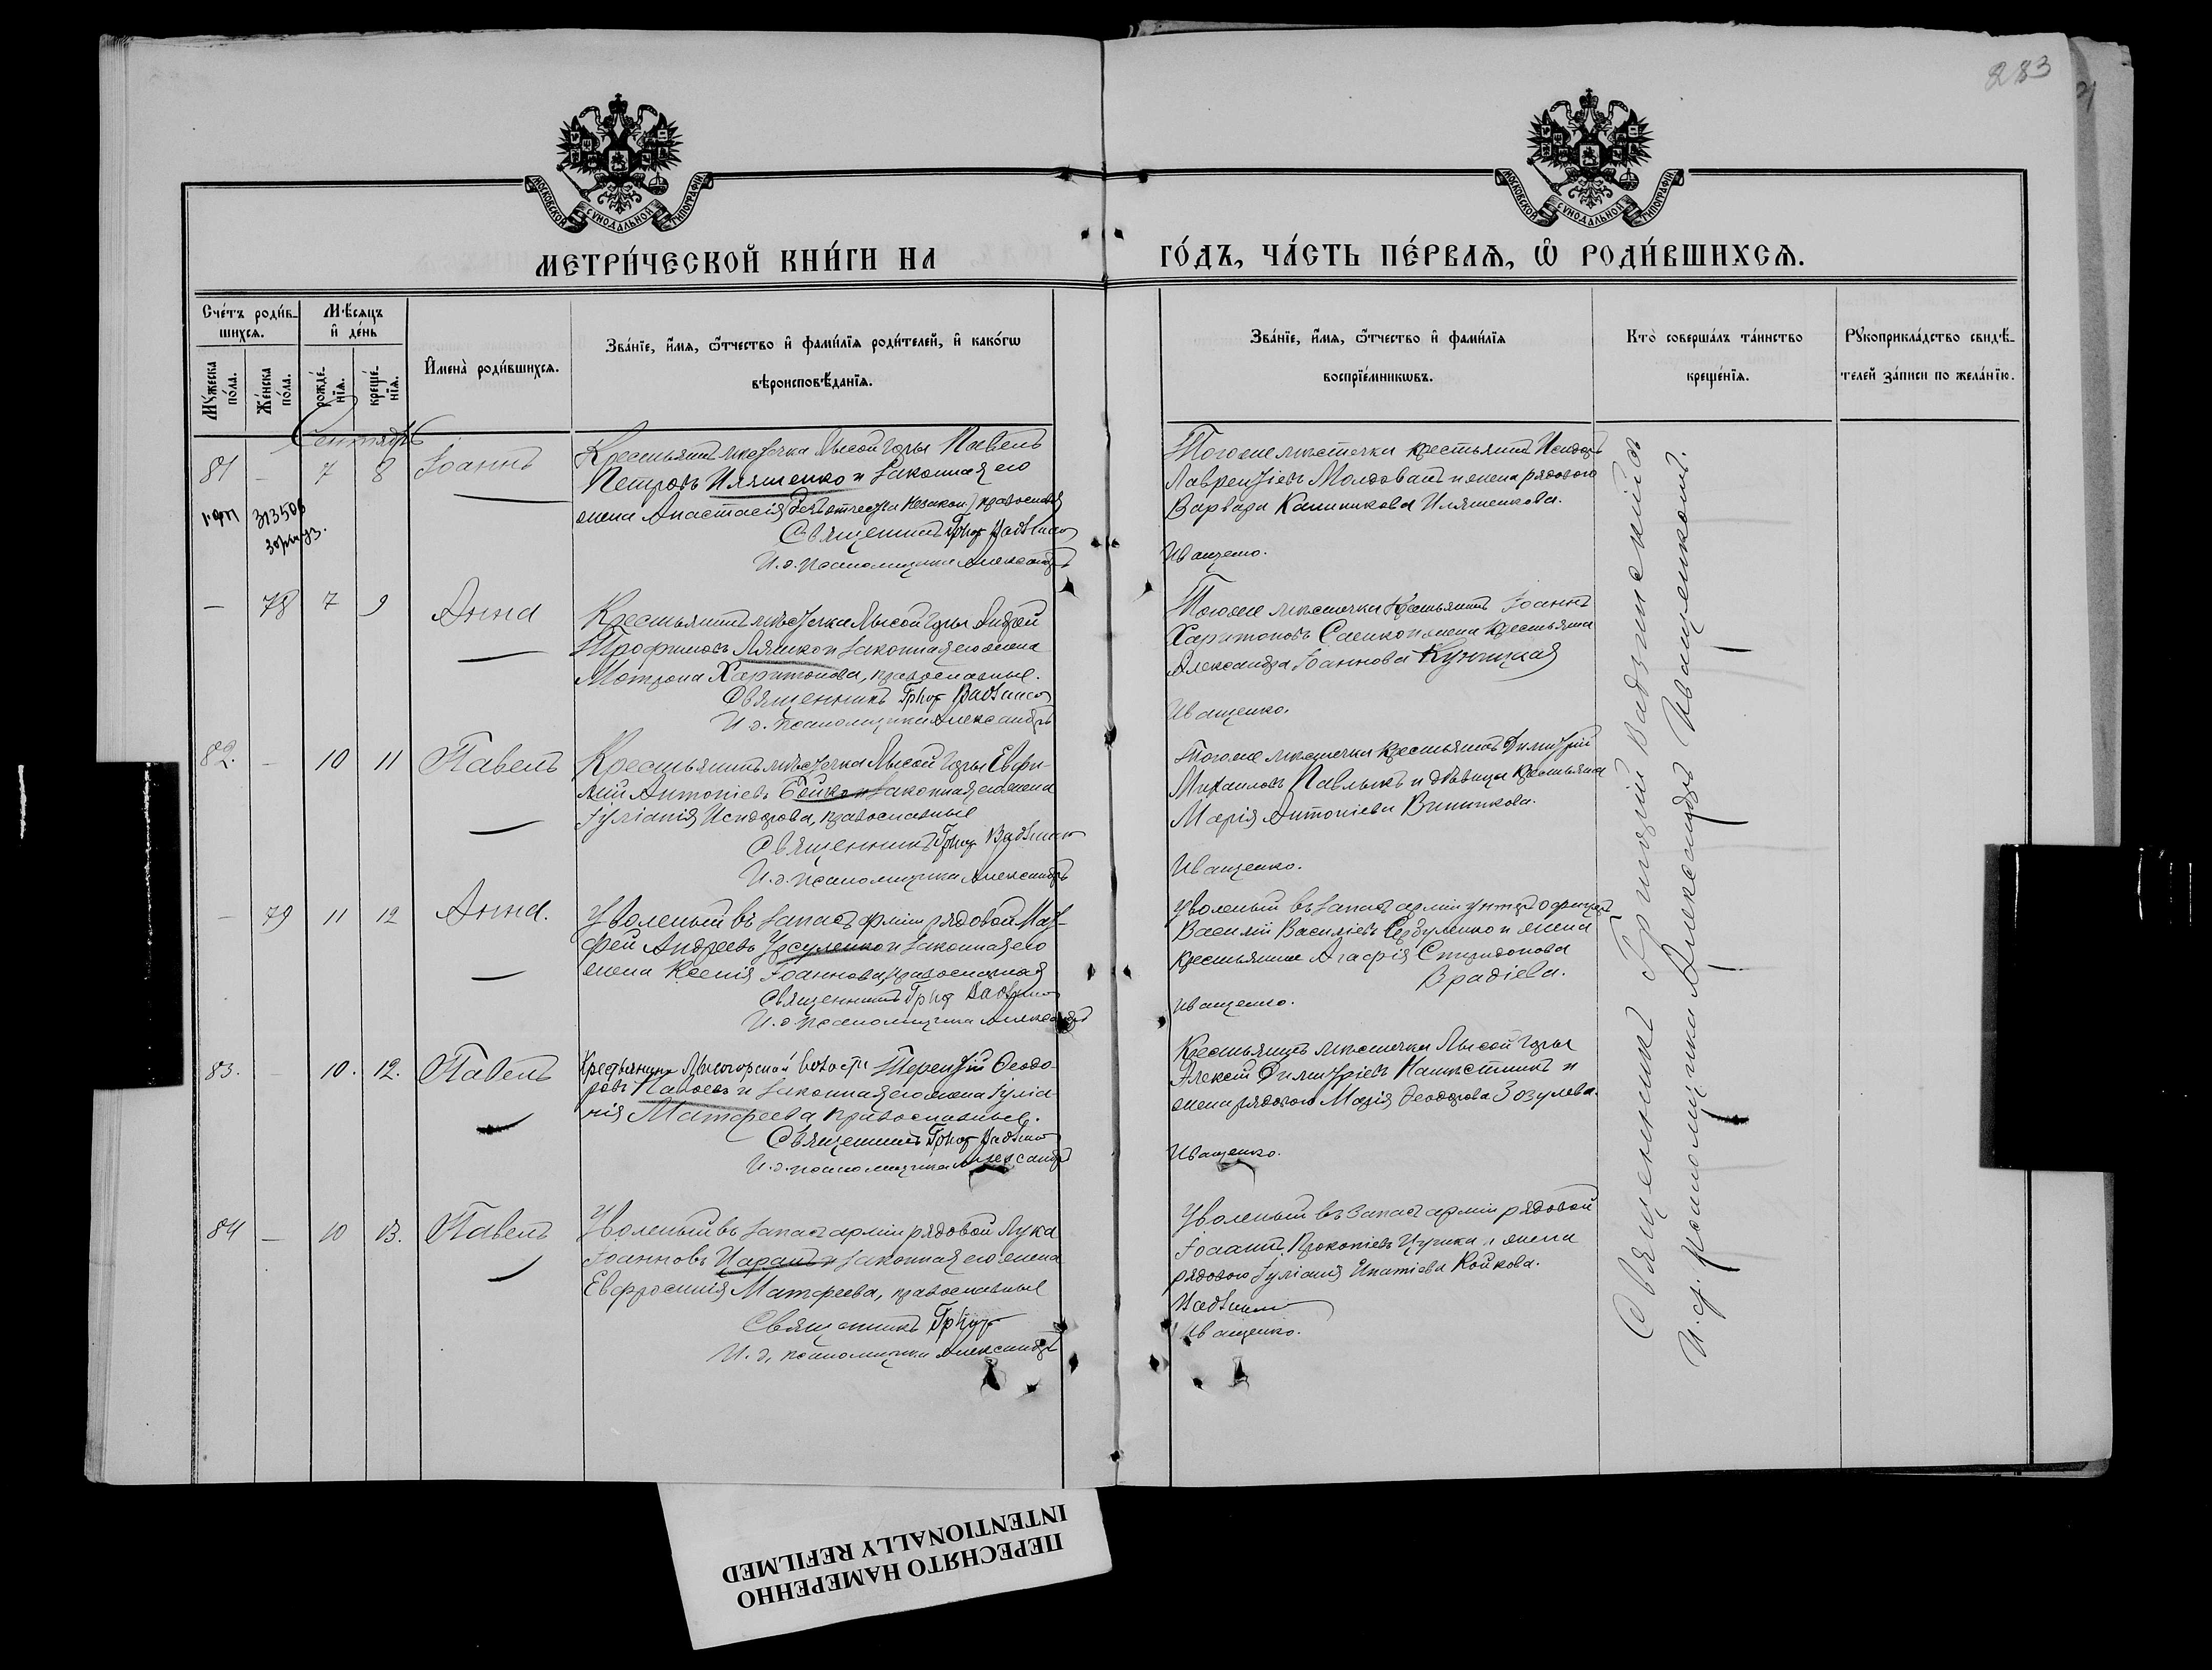 283
МОСКОВСКОЙ СУНОДАЛЬНОЙ ТИПОГРАФІИ
МОСКОВСКОЙ СУНОДАЛЬНОЙ ТИПОГРАФІИ
МЕТРИ́ЧЕСКОЙ КНИ́ГИ НА
ГО́ДЪ, ЧА́СТЬ ПЕ́РВАѦ, Ѡ҆ РОДИ́ВШИХСѦ.
Сче́тъ роди́в-
шихсѧ.
Мꙋ́жеска по́ла.
Же́нска по́ла.
Мѣ́сѧцъ
и҆ де́нь
рожде́-
нїѧ.
креще́-
нїѧ.
И҆мена̀ роди́вшихсѧ.
Зва́нїе, и҆́мѧ, ѻ҆́тчество и҆ фами́лїѧ роди́телей, и҆ како́гѡ
вѣроисповѣ́данїѧ.
Зва́нїе, и҆́мѧ, ѻ҆́тчество и҆ фами́лїѧ
воспрїе́мникѡвъ.
Кто̀ соверша́лъ та́инство
креще́нїѧ.
Рꙋкоприкла́дство свидѣ́-
телей за́писи по жела́нїю.
Сентябрь
81 - 7 8 Іоаннъ
Крестьянинъ мѣстечка Лысой Горы Павелъ
Петровъ Иляшенко и законная его
жена Анастасія
Священникъ Григ
И. д. псаломщика Александръ
313506
Тогоже мѣстечка крестьянинъ Исидоръ
Лаврентіевъ Молдованъ и жена рядового
Варвара Калиникова Иляшенкова.
Иващенко.
— 78 7 9 Анна
Крестьянинъ мѣстечка Лысой Горы Андрей
Трофимовъ Ляшко и законная его жена
Мотрона Харитонова, православные.
Священникъ Григ
И. д. псаломщика Александръ
Тогоже мѣстечка крестьянинъ Іоаннъ
Харитоновъ Саенко и жена крестьянина
Александра Іоаннова Куницкая
Иващенко.
82. - 10 11 Павелъ
Крестьянинъ мѣстечка Лысой Горы Евфи-
мій Антоніевъ Бойко и законная его жена
Іуліанія Исидорова, православные
Священникъ Григ
И. д. псаломщика Александръ
Тогоже мѣстечка крестьянинъ Димитрій
Михаиловъ Павлыкъ и дѣвица крестьянка
Марія Антоніева
Иващенко.
- 79 11 12 Анна.
Уволеный въ запасъ арміи рядовой Мат-
фей Андреевъ Урсуленко и законная его
жена Ксенія Іоаннова, православная
Священникъ Григ
И. д. псаломщика Александръ
Уволеный въ запасъ арміи унтеръ офицеръ
Василій Василіевъ и жена
крестьянина Агафія Спиридонова
Врадіева.
Иващенко.
83. - 10. 12. Павелъ
Крестьянинъ Лысогорской волости Терентій Ѳеодо-
ровъ и законная его жена Іуліа-
нія Матфеева православные.
Священникъ Григ
И. д. псаломщика Александръ
Крестьянинъ мѣстечка Лысой Горы
Алексій Димитріевъ и
жена рядового Марія Ѳеодорова Зозулева.
Иващенко.
84 — 10 13. Павелъ
Уволеный въ запасъ арміи рядовой Лука
Іоанновъ Царанъ и законная его жена
Евфросинія Матфеева, православные
Священникъ Григ
И. д. псаломщика Александръ
Уволеный въ запасъ арміи рядовой
Іоаннъ Прокопіевъ и жена
рядового Іуліанія Игнатіева Койкова.
Иващенко.
Священникъ Григорій
И. д. псаломщика Александръ Иващенковъ.
ПЕРЕСНЯТО НАМЕРЕННО
INTENTIONALLY REFILMED